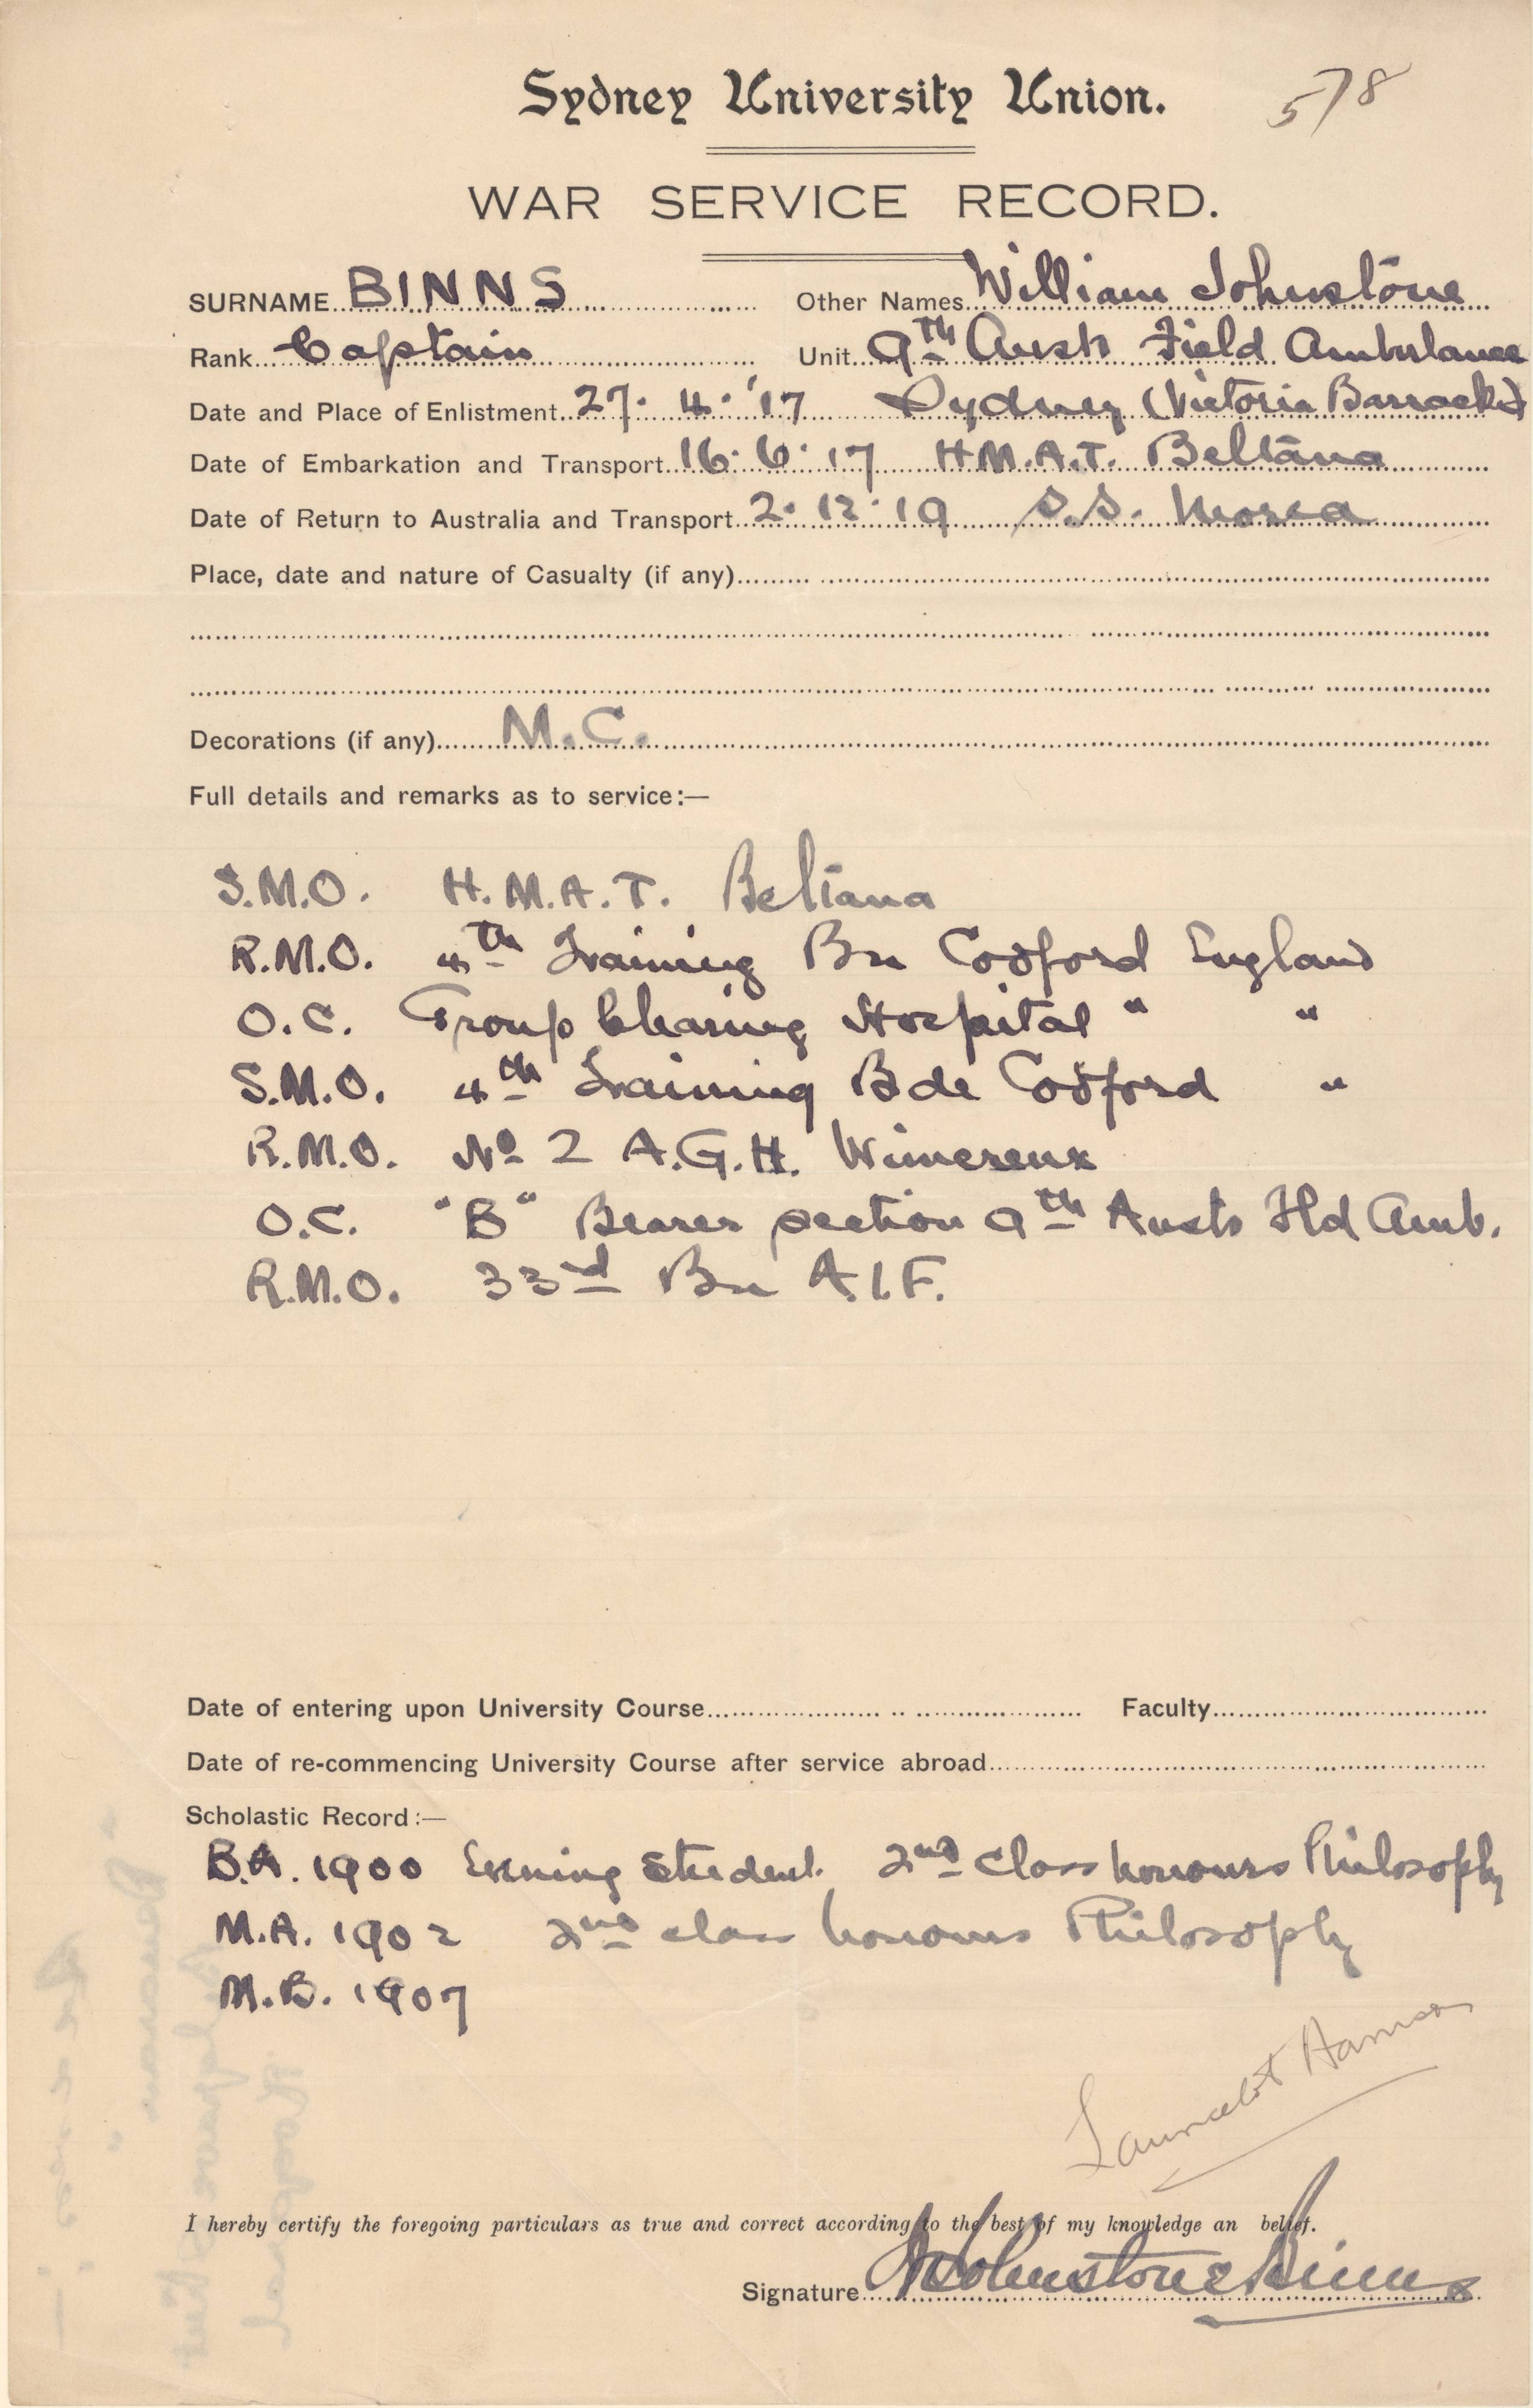 Sydney University Union.
578
WAR SERVICE RECORD.
SURNAME BINNS Other Names William Johnstone
Rank Captain Unit 9th Aust Field Ambulance
Date and Place of Enlistment 27. 4. '17 Sydney (Victoria Barracks)
Date of Embarkation and Transport 16. 6. 17 H.M.A.T. Beltana
Date of Return to Australia and Transport 2. 12. 19 S.S. Morea
Place, date and nature of Casualty (if any)
Decorations (if any) M.C.
Full details and remarks as to service:—
S.M.O. H.M.A.T. Beltana
R.M.O. 4th Training Bn Codford England
O.C. Group Clearing Hospital " "
S.M.O. 4th Training Bde Codford "
R.M.O. No 2 A.G.H. Wimereux
O.C. "B" Bearer section 9th Aust Fld Amb.
R.M.O. 33rd Bn A.I.F.
Date of entering upon University Course Faculty
Date of re-commencing University Course after service abroad
Scholastic Record:—
B.A. 1900 Evening Student. 2nd class honours Philosophy
M.A. 1902 2nd class honours Philosophy
M.B. 1907
Launcelot Harrison
I hereby certify the foregoing particulars as true and correct according to the best of my knowledge an belief.
Signature WJohnstone Binns